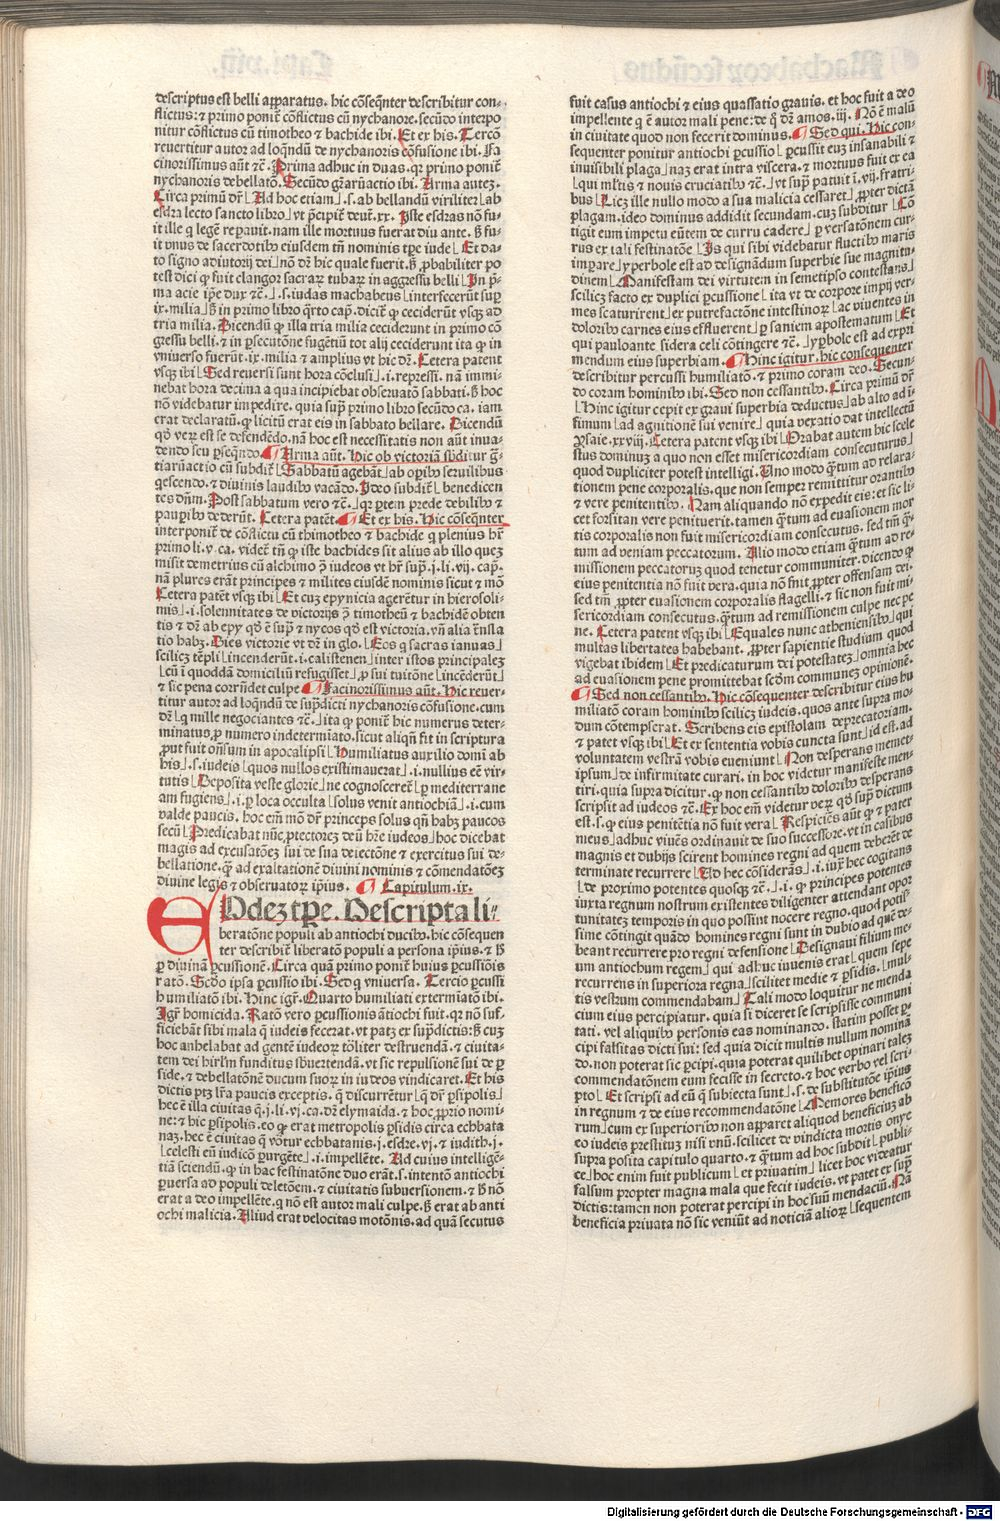 descriptus est belli apparatus. hic cōseq̄nter describitur con-
flictus: ⁊ primo poniť cōflictus cū nychanore. secūdo interpo
nitur cōflictus cū timotheo ⁊ bachide ibi. Et ex his. Tercō
reuertitur autor ad loq̄ndū de nychanoris cōfusione ibi. Fa
cinorissimus aūt ⁊c̄. Prima adhuc in duas. qꝛ primo poniť
nychanoris debellatō. Secūdo gr̄aꝝactio ibi. Arma auteꝫ.
Circa primū dꝛ̄ ⌊Ad hoc etiam⌋.s. ab bellandū viriliter⌊ab
esdra lecto sancto libro⌋vt p̄cipiť deut̄.xx. Iste esdras nō fu-
it ille q̇ legē repauit. nam ille mortuus fuerat diu ante. sꝫ fu-
it vnus de sacerdotibꝰ eiusdem tn̄ nominis tp̄e iude⌊Et da-
to signo adiutorij dei⌋nō dꝛ̄ hic quale fuerit. sꝫ ꝓbabiliter po
test dici ꝙ fuit clangor sacraꝝ tubaꝝ in aggressu belli⌊In p̄-
ma acie ip̄e dux ⁊c̄.⌋.s. iudas machabeus⌊interfecerūt suꝑ
ix. milia⌋sꝫ in primo libro q̄rto cap̄. diciť ꝙ ceciderūt vsqꝫ ad
tria milia. Dicendū ꝙ illa tria milia ceciderunt in primo cō
gressu belli. ⁊ in ꝑsecutōne fugētiū tot alij ceciderunt ita ꝙ in
vniuerso fuerūt .ix. milia ⁊ amplius vt hic dꝛ̄. Cetera patent
vsqꝫ ibi⌊Sed reuersi sunt hora cōclusi⌋.i. repressi. nā immi-
nebat hora decima a qua incipiebat obseruatō sabbati. sꝫ hoc
nō videbatur impedire. quia supꝰ primo libro secūdo ca. iam
erat declaratū. ꝙ licitū erat eis in sabbato bellare. Dicendū
qꝫ veꝝ est se defendēdo. nā hoc est necessitatis non aūt inua-
dendo seu ꝑseq̄ndo. Arma aūt. Hic ob victoriā sꝫditur ḡ-
tiaꝝactio cū subdiť⌊Sabbatū agebāt⌋ab opibꝰ seruilibus
q̄escendo. ⁊ diuinis laudibꝰ vacādo. Ideo subdiť⌊benedicen
tes dn̄m. Post sabbatum vero ⁊c̄.⌋qꝛ ꝑtem prede debilibꝰ ⁊
pauꝑibꝰ dederūt. Cetera patēt. Et ex his. Hic cōseq̄nter
interponiť de cōflictu cū thimotheo ⁊ bachide q̇ plenius hr̄
primo li.v.ca. videť tn̄ ꝙ iste bachides sit alius ab illo queꝫ
misit demetrius cū alchimo ꝯ iudeos vt hr̄ suꝑ .j.li.vij. cap̄.
nā plures erāt principes ⁊ milites eiusdē nominis sicut ⁊ mō
Cetera patēt vsqꝫ ibi⌊Et cuꝫ epynicia agerētur in hierosoli-
mis⌋.i. solennitates de victorijs ꝯ timotheū ⁊ bachidē obten
tis ⁊ dꝛ̄ ab epy qd̄ ē supꝰ ⁊ nycos qd̄ est victoria. vn̄ alia trāsla
tio habꝫ. Dies victorie vt dꝛ̄ in glo.⌊Eos q̇ sacras ianuas⌋
scilicꝫ tēpli⌊incenderūt.i. calistenen⌋inter istos principaleꝫ
⌊cū ī quoddā domiciliū refugisset⌋ꝓ sui tuitōne⌊incēderūt⌋
⁊ sic pena corrn̄det culpe Facinorissimus aūt. Hic reuer-
titur autor ad loq̄ndū de sup̄dicti nychanoris cōfusione. cum
dꝛ̄⌊q̇ mille negociantes ⁊c̄.⌋ita ꝙ poniť hic numerus deter-
minatus ꝓ numero indeterminato. sicut aliqn̄ fit in scriptura
ꝓut fuit on̄sum in apocalipsi⌊humiliatus auxilio domī ab
his⌋.s. iudeis⌊quos nullos existimauerat⌋.i. nullius eē vir-
tutis⌊Deposita veste glorie⌋ne cognosceretť⌊ꝑ mediterrane
am fugiens⌋.i. ꝑ loca occulta⌊solus venit antiochiā⌋.i. cum
valde paucis. hoc em̄ mō dꝛ̄ princeps solus qn̄ habꝫ paucos
secū⌊Predicabat nūc ꝓtectoreꝫ deū hr̄e iudeos⌋hoc dicebat
magis ad excusatōeꝫ sui de sua deiectōne ⁊ exercitus sui de-
bellatione. q̄ꝫ ad exaltationē diuini nominis ⁊ cōmendatōeꝫ
diuine legis ⁊ obseruatoꝝ ip̄ius. Capitulum .ix.
EOdeꝫ tp̄e. Descripta li-
beratōne populi ab antiochi ducibꝰ. hic cōsequen
ter describiť liberatō populi a persona ip̄ius. ⁊ sꝫ
ꝑ diuinā ꝑcussionē. Circa quā primo poniť huius ꝑcussiōis
ratō. Scd̄o ipsa ꝑcussio ibi. Sed q̇ vniuersa. Tercio ꝑcussi
humiliatō ibi. Hinc igr̄. Quarto humiliati extermiatō ibi.
Igr̄ homicida. Ratō vero ꝑcussionis ātiochi fuit. qꝛ nō suf-
ficiebāt sibi mala q̄ iudeis fecerat. vt patꝫ ex sup̄dictis: sꝫ cuꝫ
hoc anhelabat ad gentē iudeoꝝ tōliter destruendā. ⁊ ciuita-
tem dei hirl̄m funditus sꝫuertendā. vt sic repulsionē sui de ꝑ
side. ⁊ debellatōnē ducum suoꝝ in iudeos vindicaret. Et his
dictis ptꝫ lr̄a paucis exceptis. q̄ discurrētur⌊q̄ dꝛ̄ ꝑsipolis⌋
hec ē illa ciuitas q̄ .j.li.vj.ca. dꝛ̄ elymaida. ⁊ hoc ꝓprio nomi
ne: ⁊ hic ꝑsipolis. eo ꝙ erat metropolis ꝑsidis circa ecbbata
naꝫ. hec ē ciuitas q̄ vōtur ecbbatanis .j. esdre .vj. ⁊ iudith .j.
⌊celesti eū iudicō ꝑurgēte⌋.i. impellēte. Ad cuius intelligē-
tiā sciendū. ꝙ in hac festinatōne duo erāt. s. intentō antiochi
ꝑuersa ad populi deletōem. ⁊ ciuitatis subuersionem. ⁊ sꝫ nō
erat a deo impellēte. q̇ nō est autor mali culpe. sꝫ erat ab anti
ochi malicia. Aliud erat velocitas motōnis. ad quā secutus
fuit casus antiochi ⁊ eius quassatio grauis. et hoc fuit a deo
impellente q̇ ē autor mali pene: de q̇ dꝛ̄ amos .iij. Nō ē malū
in ciuitate quod non fecerit dominus. Sed qui. Hic con-
sequenter ponitur antiochi ꝑcussio⌊ꝑcussit euꝫ insanabili ⁊
inuisibili plaga⌋naꝫ erat intra viscera. ⁊ mortuus fuit ex ea
⌊qui ml̄tis ⁊ nouis cruciatibꝰ ⁊c̄.⌋vt supꝰ patuit ī .vij. fratri-
bus⌊Licꝫ ille nullo modo a sua malicia cessaret⌋ꝓpter dictā
plagam. ideo dominus addidit secundam. cuꝫ subditur⌊Cō
tigit eum impetu eūtem de curru cadere⌋ꝑ versatōnem cur-
rus ex tali festinatōe⌊Is qui sibi videbatur fluctibꝰ maris
imꝑare⌋yperbole est ad designādum superbie sue magnitu-
dinem⌊Manifestam dei virtutem in semetipso contestans⌋
scilicꝫ facto ex duplici ꝑcussione⌊ita vt de corpore impij ver-
mes scaturirent⌋ex putrefactōne intestinoꝝ⌊ac viuentes in
doloribꝰ carnes eius effluerent⌋ꝑ saniem apostematum⌊Et
qui pauloante sidera celi cōtingere ⁊c̄.⌋yꝑbole est ad expri
mendum eius superbiam. Hinc igitur. hic consequenter
describitur percussi humiliatō. ⁊ primo coram deo. Secun-
do coram hominibꝰ ibi. Sed non cessantibꝰ. Circa primū dꝛ̄
⌊Hinc igitur cepit ex graui superbia deductus⌋ab alto ad i
simum⌊ad agnitionē sui venire⌋quia vexatio dat intellectū
Ysaie .xxviij. Cetera patent vsqꝫ ibi⌊Orabat autem hic scele
stus dominuꝫ a quo non esset misericordiam consecuturus⌋
quod dupliciter potest intelligi. Vno modo q̄tum ad relaxa-
tionem pene corporalis. que non semper remittitur orantibꝰ
⁊ vere penitentibꝰ. Nam aliquando nō expedit eis: et sic li-
cet forsitan vere penituerit. tamen q̄tum ad euasionem mor
tis corporalis non fuit misericordiam consecutus. sed tm̄ q̄-
tum ad veniam peccatorum. Alio modo etiam q̄tum ad re-
missionem peccatoruꝫ quod tenetur communiter. dicendo ꝙ
eius penitentia nō fuit vera. quia nō fuit ꝓpter offensam dei.
sed tm̄ ꝓpter euasionem corporalis flagelli. ⁊ sic non fuit mi-
sericordiam consecutus. q̄tum ad remissionem culpe nec pe
ne. Cetera patent vsqꝫ ibi⌊Equales nunc atheniensibꝰ⌋qui
multas libertates habebant. ꝓpter sapientie studiam quod
vigebat ibidem⌊Et predicaturum dei potestateꝫ⌋omnia hec
ad euasionem pene promittebat scd̄m communeꝫ opinionē.
Sed non cessantibꝰ. hic cōsequenter describitur eius hu
miliatō coram hominibꝰ scilicꝫ iudeis. quos ante supra mo-
dum cōtempserat. Scribens eis epistolam deprecatoriam.
⁊ patet vsqꝫ ibi⌊Et ex sententia vobis cuncta sunt⌋id est. ad
voluntatem vestrā vobis eueniunt⌊Non desperans memet-
ipsum⌋de infirmitate curari. in hoc videtur manifeste men-
tiri. quia supra dicitur. ꝙ non cessantibꝰ doloribꝰ desperans
scripsit ad iudeos ⁊c̄. Ex hoc em̄ videtur veꝝ qd̄ supꝰ dictum
est .s. ꝙ eius penitētia nō fuit vera⌊Respiciēs aūt ꝙ ⁊ pater
meus⌋adhuc viuēs ordinauit de suo successore. vt in casibus
magnis et dubijs scirent homines regni ad quem deberēt de
terminate recurrere⌊Ad hec cōsiderās⌋.i. iuxꝫ hec cogitans
⌊de proximo potentes quosqꝫ ⁊c̄.⌋.i. ꝙ principes potentes
iuxta regnum nostrum existentes diligenter attendant opor
tunitateꝫ temporis in quo possint nocere regno. quod potis-
sime cōtingit quādo homines regni sunt in dubio ad quē de-
beant recurrere pro regni defensione⌊Designaui filium me-
um antiochum regem⌋qui adhuc iuuenis erat⌊quem sepe
recurrens in superiora regna⌋scilitet medie ⁊ ꝑsidis.⌊mul-
tis vestrum commendabam⌋Tali modo loquitur ne menda
cium eius percipiatur. quia si diceret se scripsisse communi
tati. vel aliquibꝰ personis eas nominando. statim posset ꝑ-
cipi falsitas dicti sui: sed quia dicit multis nullum nominā
do. non poterat sic ꝑcipi. quia poterat quilibet opinari taleꝫ
commendatōnem eum fecisse in secreto. ⁊ hoc verbo vel scri-
pto⌊Et scripsi ad eū q̄ subiecta sunt⌋.s. de substitutōe ip̄ius
in regnum ⁊ de eius recommendatōne⌊Memores beneficō
rum⌋cum ex superioribꝰ non apparet aliquod beneficiuꝫ ab
eo iudeis prestituꝫ nisi vnū. scilicet de vindicta mortis onye
supra posita capitulo quarto. ⁊ q̄tum ad hoc subdit⌊publi-
ce⌋hoc enim fuit publicum⌊et priuatim⌋licet hoc videatur
falsum propter magna mala que fecit iudeis. vt patet ex supꝰ
dictis: tamen non poterat percipi in hoc suū mendaciū. Nā
beneficia priuata nō sic veniūt ad noticiā alioꝝ⌊sequentem
Digitalisierung gefördert durch die Deutsche Forschungsgemeinschaft - DFG